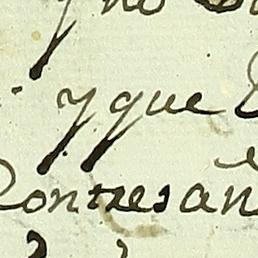 y no
y que
Con tres añ